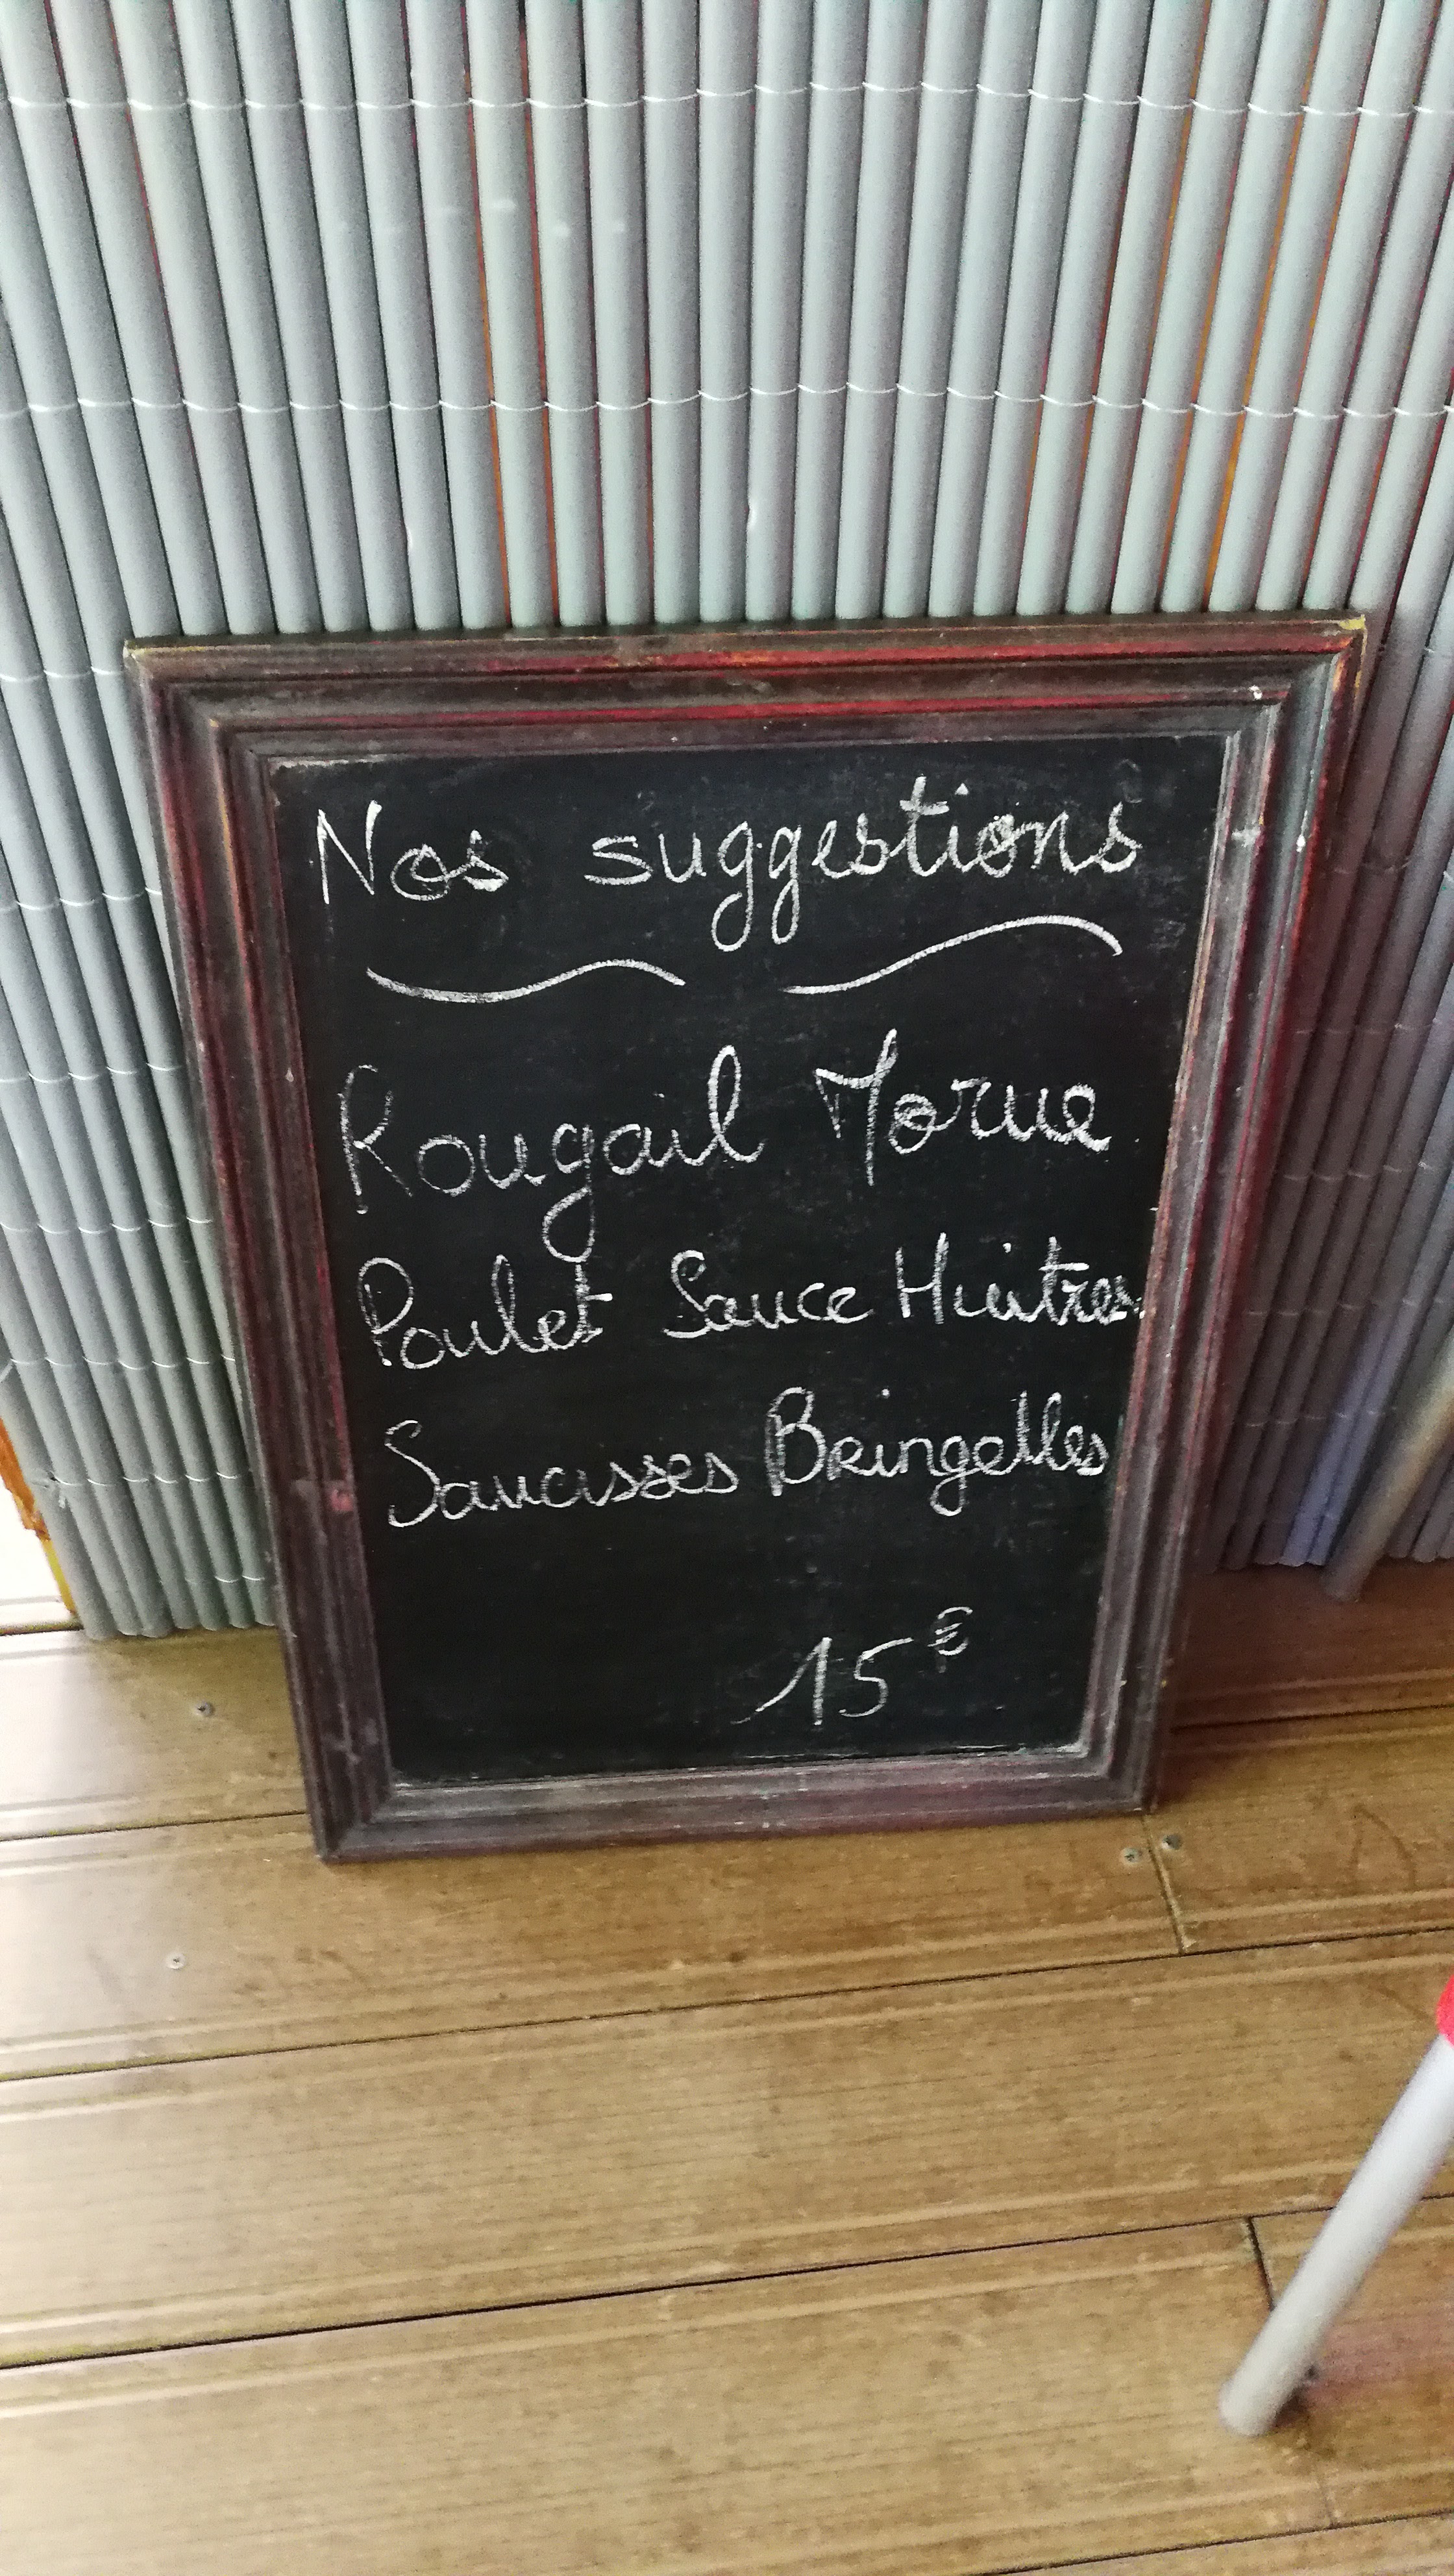 Nos suggestions
Rougail Morue
Poulet Sauce Huitres
Saucisses Bringelles
15 €